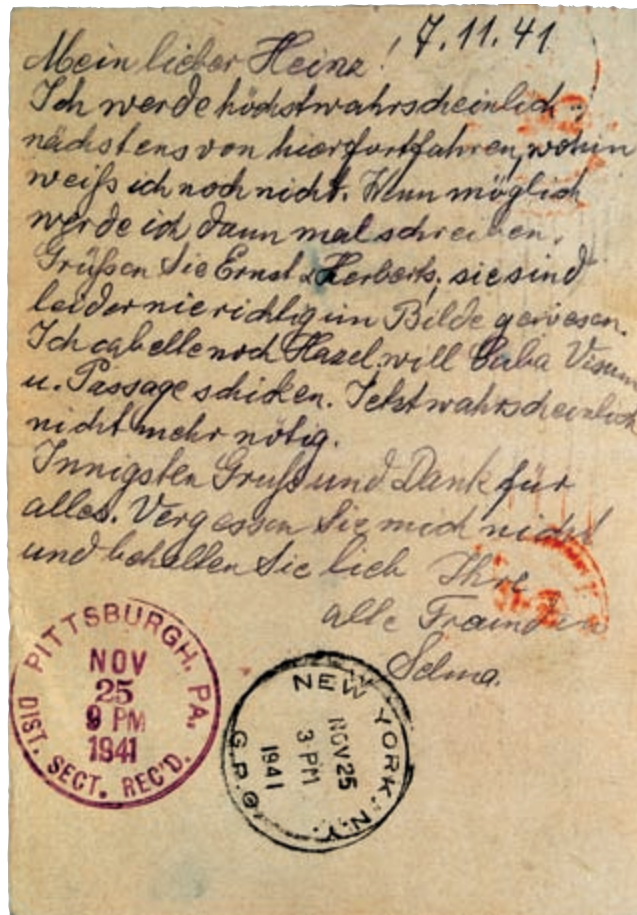 7.11.41
Mein lieber Heinz!
Ich werde höchstwahrscheinlich
nächstens von hier fortfahren, wohin
weiß ich noch nicht. Wenn möglich
werde ich dann mal schreiben.
Grüßen Sie Ernst & Herberts, sie sind
leider nie richtig im Bilde gewesen.
Ich cabelle noch Hazel, will Cuba Visum
u. Passage schicken. Jetzt wahrscheinlich
nicht mehr nötig.
Innigsten Gruß und Dank für
alles. Vergessen Sie mich nicht
und behalten Sie lieb Ihre
alte Freundin
Selma.
PITTSBURGH, PA.
NOV
25
9 PM
1941
DIST. SECT. REC'D.
NEW YORK, N.Y.
NOV 25
3 PM
1941
G.P.O.